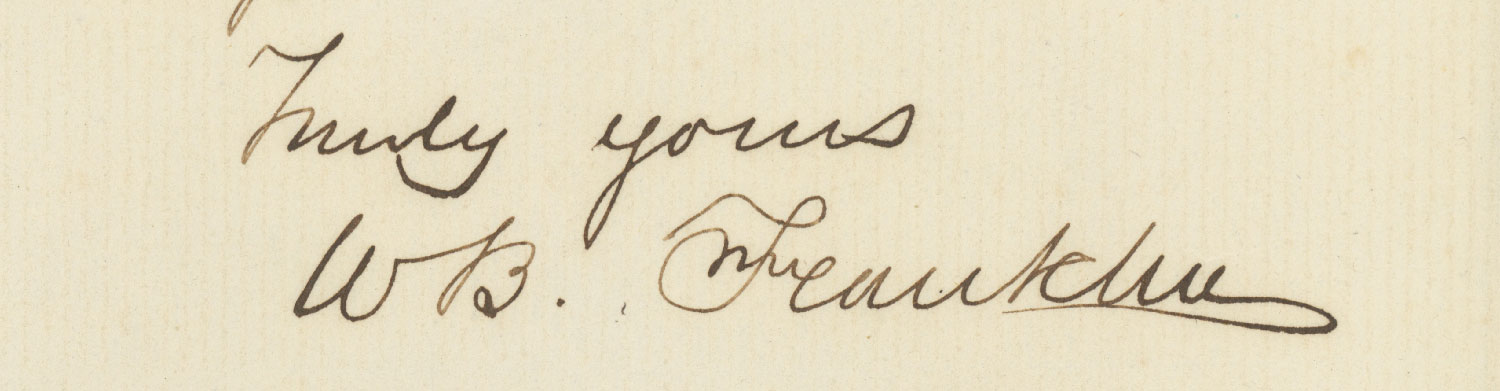 Truly yours
W B. Franklin